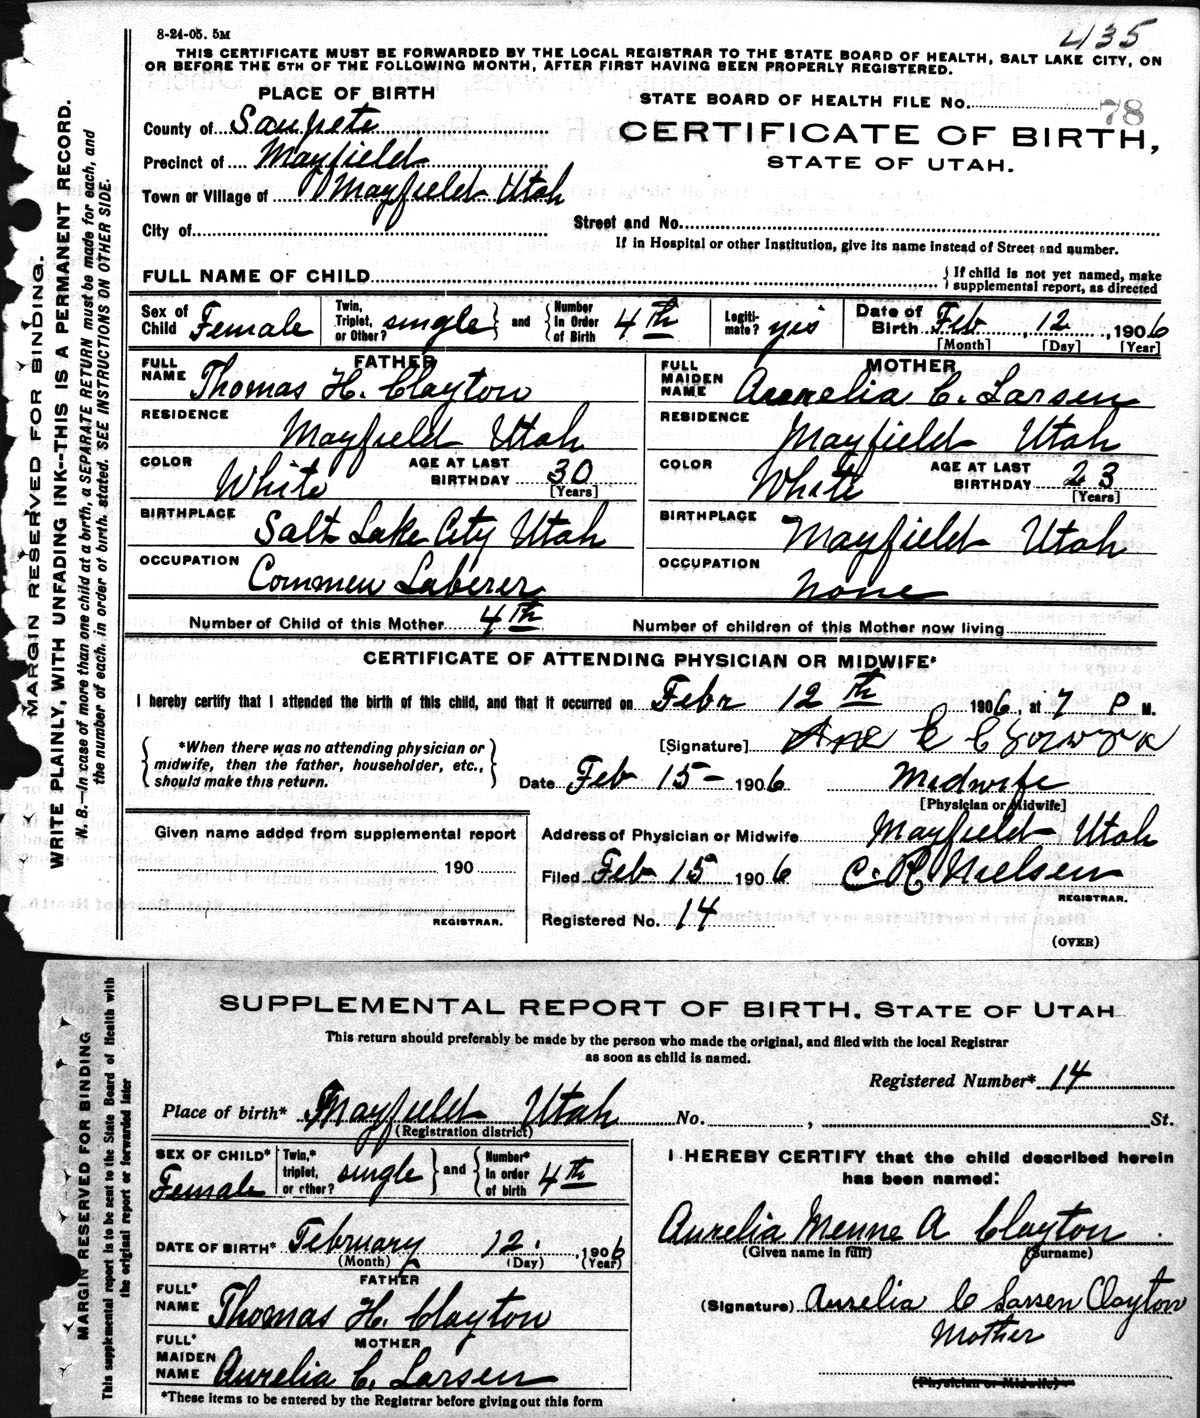 435
8-24-05. 5M
THIS CERTIFICATE MUST BE FORWARDED BY THE LOCAL REGISTRAR TO THE STATE BOARD OF HEALTH, SALT LAKE CITY, ON
OR BEFORE THE 5TH OF THE FOLLOWING MONTH, AFTER FIRST HAVING BEEN PROPERLY REGISTERED.
PLACE OF BIRTH
STATE BOARD OF HEALTH FILE No. 78
County of Sanpete
CERTIFICATE OF BIRTH,
STATE OF UTAH.
Precinct of Mayfield
Town or Village of Mayfield Utah
City of
Street and No.
If in Hospital or other Institution, give its name instead of Street and number.
FULL NAME OF CHILD
{ If child is not yet named, make
supplemental report, as directed
Sex of Child Female
Twin, Triplet, or Other? single } and { Number In Order of Birth 4th
Legiti-mate? yes
Date of Birth Feb, 12, 1906
[Month] [Day] [Year]
FATHER
FULL NAME Thomas H. Clayton
RESIDENCE Mayfield Utah
COLOR White AGE AT LAST BIRTHDAY 30
[Years]
BIRTHPLACE Salt Lake City Utah
OCCUPATION Commen Laberer
MOTHER
FULL MAIDEN NAME Aurelia C. Larsen
RESIDENCE Mayfield Utah
COLOR White AGE AT LAST BIRTHDAY 23
[Years]
BIRTHPLACE Mayfield Utah
OCCUPATION None
Number of Child of this Mother 4th Number of children of this Mother now living
CERTIFICATE OF ATTENDING PHYSICIAN OR MIDWIFE*
I hereby certify that I attended the birth of this child, and that it occurred on Febr 12th 1906, at 7 P M.
{ *When there was no attending physician or
midwife, then the father, householder, etc.,
should make this return. }
[Signature] Ane E C
Date Feb 15 - 1906 Midwife
[Physician or Midwife]
Given name added from supplemental report
190
REGISTRAR.
Address of Physician or Midwife Mayfield Utah
Filed Feb 15 1906 C. R. Nielsen
REGISTRAR.
Registered No. 14
(OVER)
MARGIN RESERVED FOR BINDING.
WRITE PLAINLY, WITH UNFADING INK--THIS IS A PERMANENT RECORD.
N. B.—In case of more than one child at a birth, a SEPARATE RETURN must be made for each, and
the number of each, in order of birth, stated. SEE INSTRUCTIONS ON OTHER SIDE.
SUPPLEMENTAL REPORT OF BIRTH, STATE OF UTAH
This return should preferably be made by the person who made the original, and filed with the local Registrar
as soon as child is named.
Registered Number* 14
Place of birth* Mayfield Utah No. , St.
(Registration district)
SEX OF CHILD* Female
Twin,* triplet, or other? single } and { Number* In order of birth 4th
DATE OF BIRTH* February 12. , 1906
(Month) (Day) (Year)
FATHER
FULL* NAME Thomas H. Clayton
MOTHER
FULL* MAIDEN NAME Aurelia C. Larsen
*These items to be entered by the Registrar before giving out this form
I HEREBY CERTIFY that the child described herein
has been named:
Aurelia Menne A Clayton
(Given name in full) (Surname)
(Signature) Aurelia C Larsen Clayton
Mother
(Physician or Midwife)
MARGIN RESERVED FOR BINDING
This supplemental report is to be sent to the State Board of Health with
the original report or forwarded later